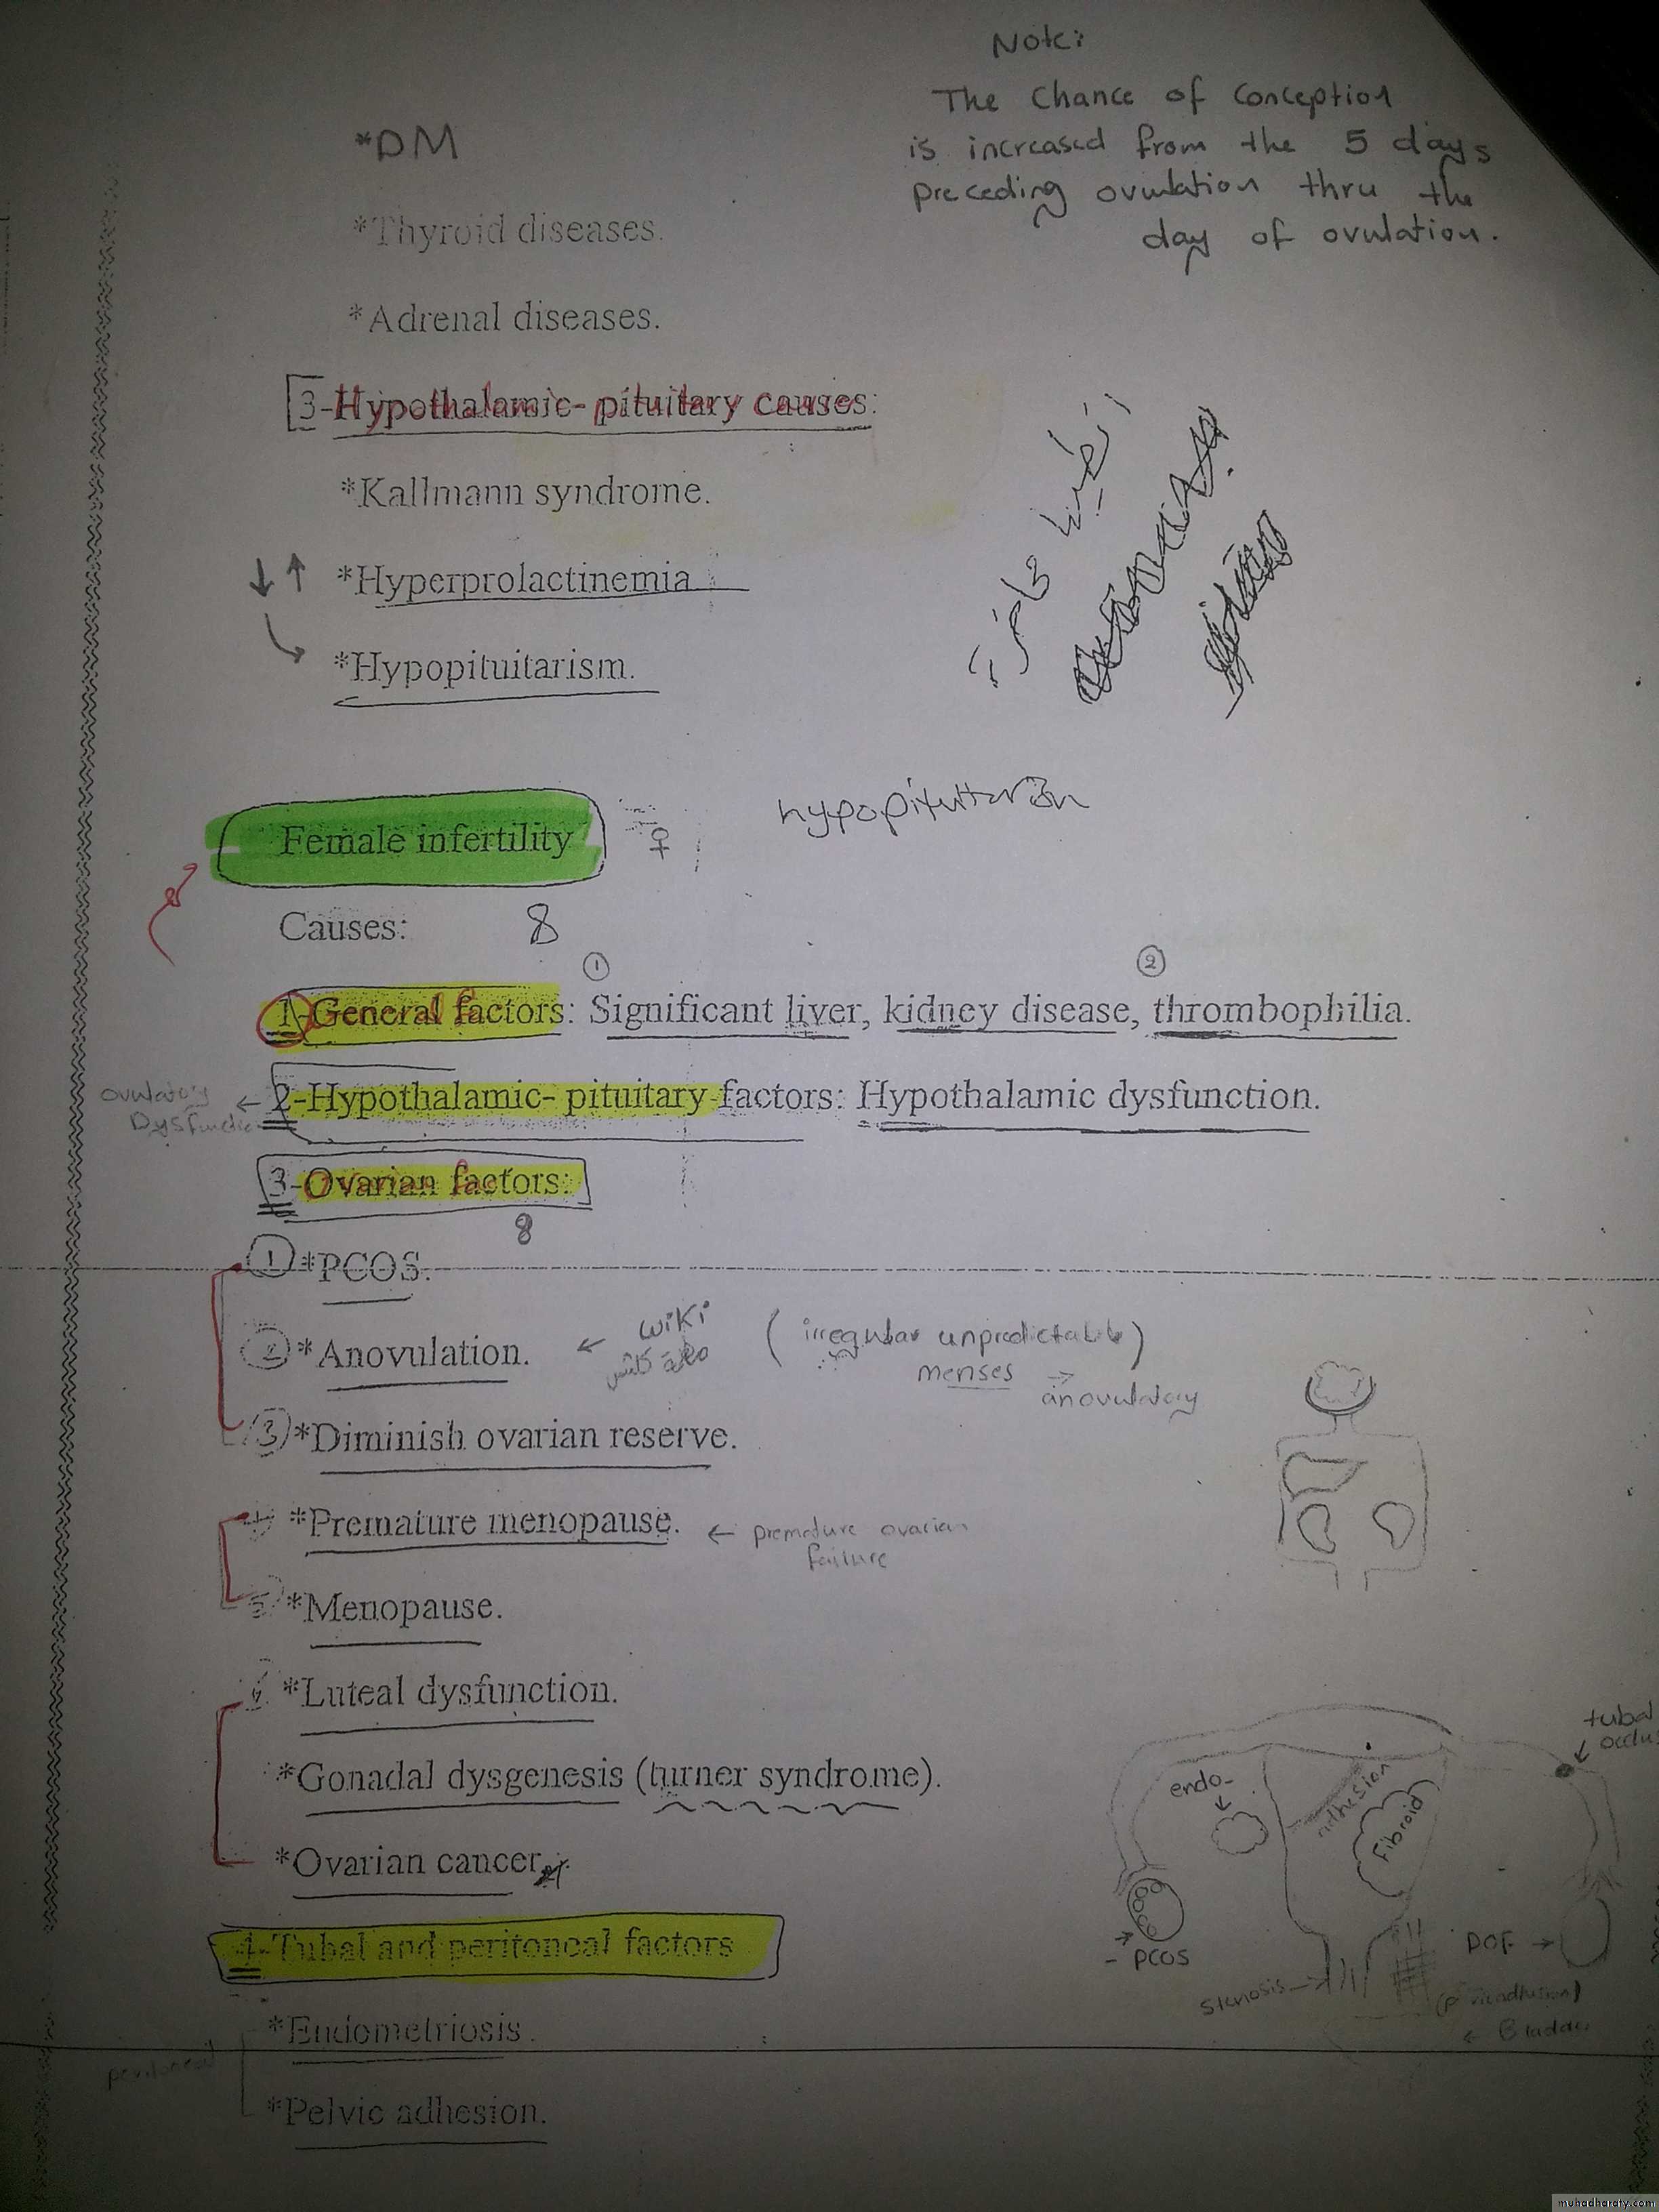 Note:
The Chance of Conception
is increased from the 5 days
preceding ovulation thru the
day of ovulation.
*DM
*Thyroid diseases.
*Adrenal diseases.
3-Hypothalamic- pituitary causes:
*Kallmann syndrome.
↓↑ *Hyperprolactinemia
*Hypopituitarism.
Female infertility ♀
Causes: 8
① ②
1-General factors: Significant liver, kidney disease, thrombophilia.
ovulatory
Dysfunction
← 2-Hypothalamic- pituitary factors: Hypothalamic dysfunction.
3-Ovarian factors:
8
① *PCOS.
② *Anovulation. ← wiki
(irregular unpredictable)
menses → anovulatory
③ *Diminish ovarian reserve.
*Premature menopause. ← premature ovarian
failure
5 *Menopause.
*Luteal dysfunction.
*Gonadal dysgenesis (turner syndrome).
*Ovarian cancer
4-Tubal and peritoneal factors
*Endometriosis.
peritoneal
*Pelvic adhesion.
tubal
endo-
adhesion
Fibroid
- PCOS
POF →
stenosis
← Bladder
muhadharaty.com